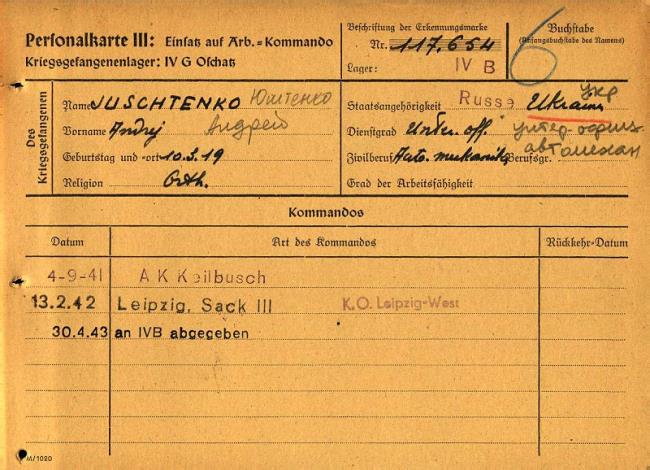 Personalkarte III: Einsatz auf Arb.=Kommando
Kriegsgefangenenlager: IV G Oschatz
Beschriftung der Erkennungsmarke
Nr. 117.654
Lager: IV B
6
Buchstabe
(Anfangsbuchstabe des Namens)
Des Kriegsgefangenen
Name JUSCHTENKO Ющтенко
Vorname Andrej Андрей
Geburtstag und -ort 10.3.19
Religion Orth.
Staatsangehörigkeit Russe Ukrainer Укр
Dienstgrad Unter.off. унтер-офиц.
Zivilberuf Auto.mechanik Berufsgr. автомехан
Grad der Arbeitsfähigkeit
Kommandos
Datum Art des Kommandos Rückkehr-Datum
4-9-41 A K Keilbusch
13.2.42 Leipzig, Sack III K.O. Leipzig-West
30.4.43 an IVB abgegeben
M/1020